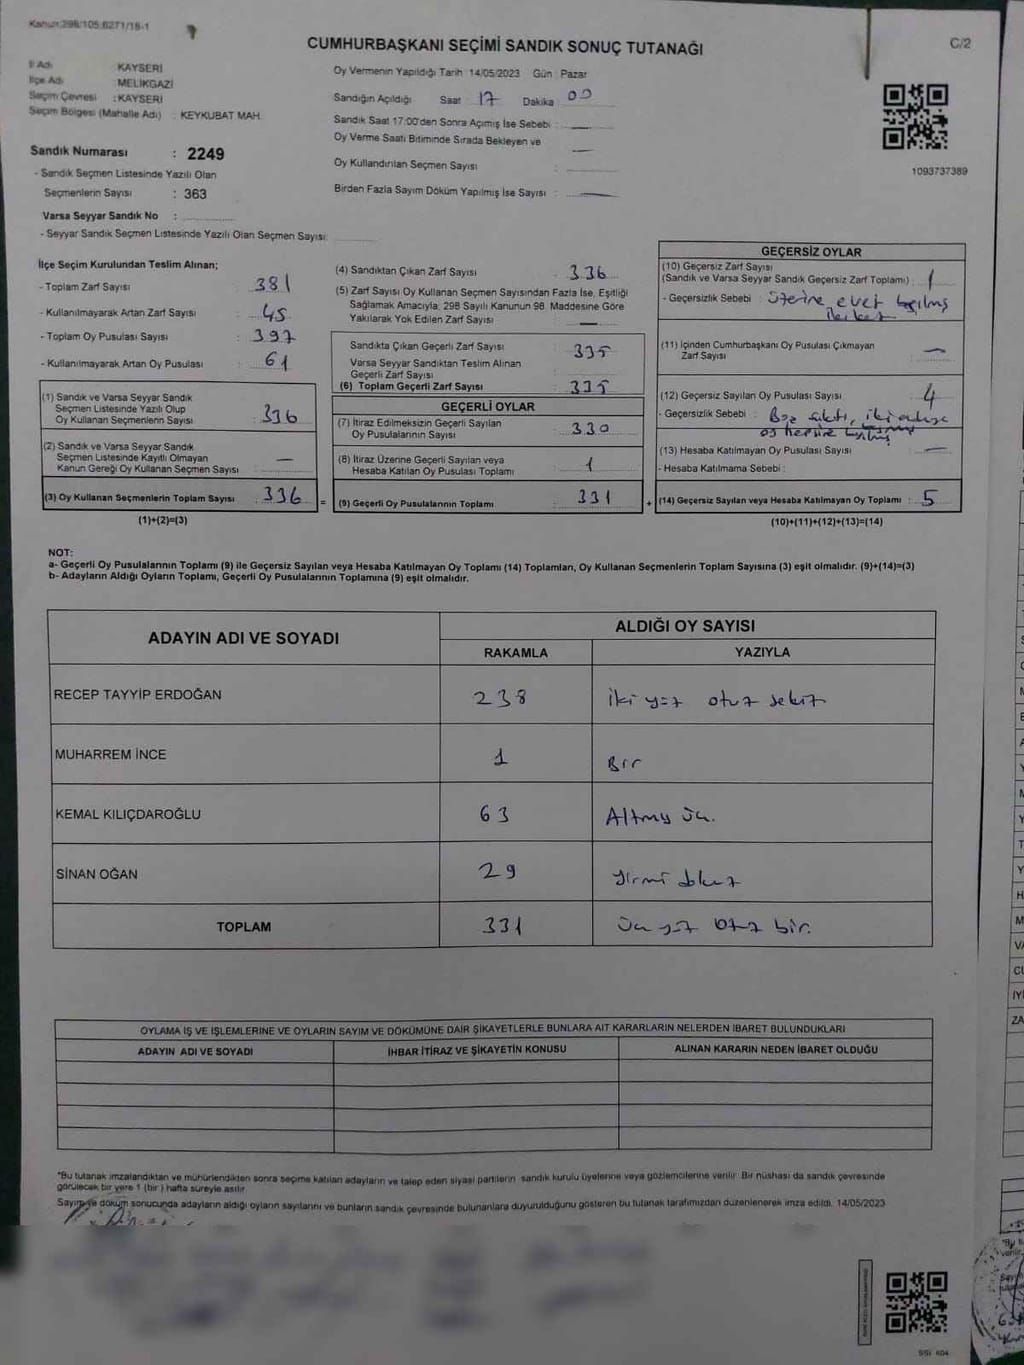 Kanun:298/105,6271/18-1
CUMHURBAŞKANI SEÇİMİ SANDIK SONUÇ TUTANAĞI
C/2
İl Adı KAYSERİ
İlçe Adı : MELİKGAZİ
Seçim Çevresi : KAYSERİ
Seçim Bölgesi (Mahalle Adı) : KEYKUBAT MAH.
Sandık Numarası : 2249
- Sandık Seçmen Listesinde Yazılı Olan
Seçmenlerin Sayısı : 363
Varsa Seyyar Sandık No :
- Seyyar Sandık Seçmen Listesinde Yazılı Olan Seçmen Sayısı:
Oy Vermenin Yapıldığı Tarih : 14/05/2023 Gün : Pazar
Sandığın Açıldığı Saat : 17 Dakika : 00
Sandık Saat 17:00'den Sonra Açımış İse Sebebi : —
Oy Verme Saati Bitiminde Sırada Bekleyen ve —
Oy Kullandırılan Seçmen Sayısı :
Birden Fazla Sayım Döküm Yapılmış İse Sayısı : —
1093737389
İlçe Seçim Kurulundan Teslim Alınan;
- Toplam Zarf Sayısı : 381
- Kullanılmayarak Artan Zarf Sayısı : 45
- Toplam Oy Pusulası Sayısı : 397
- Kullanılmayarak Artan Oy Pusulası : 61
(1) Sandık ve Varsa Seyyar Sandık
Seçmen Listesinde Yazılı Olup
Oy Kullanan Seçmenlerin Sayısı : 336
(2) Sandık ve Varsa Seyyar Sandık
Seçmen Listesinde Kayıtlı Olmayan
Kanun Gereği Oy Kullanan Seçmen Sayısı : —
(3) Oy Kullanan Seçmenlerin Toplam Sayısı : 336 =
(1)+(2)=(3)
(4) Sandıktan Çıkan Zarf Sayısı : 336
(5) Zarf Sayısı Oy Kullanan Seçmen Sayısından Fazla İse, Eşitliği
Sağlamak Amacıyla, 298 Sayılı Kanunun 98. Maddesine Göre
Yakılarak Yok Edilen Zarf Sayısı : —
Sandıkta Çıkan Geçerli Zarf Sayısı : 335
Varsa Seyyar Sandıktan Teslim Alınan
Geçerli Zarf Sayısı :
(6) Toplam Geçerli Zarf Sayısı : 335
GEÇERLİ OYLAR
(7) İtiraz Edilmeksizin Geçerli Sayılan
Oy Pusulalarının Sayısı : 330
(8) İtiraz Üzerine Geçerli Sayılan veya
Hesaba Katılan Oy Pusulası Toplamı : 1
(9) Geçerli Oy Pusulalarının Toplamı : 331 +
GEÇERSİZ OYLAR
(10) Geçersiz Zarf Sayısı
(Sandık ve Varsa Seyyar Sandık Geçersiz Zarf Toplamı) : 1
- Geçersizlik Sebebi : üzerine evet basılmış
(11) İçinden Cumhurbaşkanı Oy Pusulası Çıkmayan
Zarf Sayısı : —
(12) Geçersiz Sayılan Oy Pusulası Sayısı : 4
- Geçersizlik Sebebi : Boş çıktı, iki
(13) Hesaba Katılmayan Oy Pusulası Sayısı : —
- Hesaba Katılmama Sebebi :
(14) Geçersiz Sayılan veya Hesaba Katılmayan Oy Toplamı : 5
(10)+(11)+(12)+(13)=(14)
NOT:
a- Geçerli Oy Pusulalarının Toplamı (9) ile Geçersiz Sayılan veya Hesaba Katılmayan Oy Toplamı (14) Toplamları, Oy Kullanan Seçmenlerin Toplam Sayısına (3) eşit olmalıdır. (9)+(14)=(3)
b- Adayların Aldığı Oyların Toplamı, Geçerli Oy Pusulalarının Toplamına (9) eşit olmalıdır.
ADAYIN ADI VE SOYADI
ALDIĞI OY SAYISI
RAKAMLA YAZIYLA
RECEP TAYYİP ERDOĞAN 238 iki yüz otuz sekiz
MUHARREM İNCE 1 Bir
KEMAL KILIÇDAROĞLU 63 Altmış üç.
SİNAN OĞAN 29 yirmi dokuz
TOPLAM 331 üç yüz otuz bir.
OYLAMA İŞ VE İŞLEMLERİNE VE OYLARIN SAYIM VE DÖKÜMÜNE DAİR ŞİKAYETLERLE BUNLARA AİT KARARLARIN NELERDEN İBARET BULUNDUKLARI
ADAYIN ADI VE SOYADI İHBAR İTİRAZ VE ŞİKAYETİN KONUSU ALINAN KARARIN NEDEN İBARET OLDUĞU
*Bu tutanak imzalandıktan ve mühürlendikten sonra seçime katılan adayların ve talep eden siyasi partilerin sandık kurulu üyelerine veya gözlemcilerine verilir. Bir nüshası da sandık çevresinde
görülecek bir yere 1 (bir ) hafta süreyle asılır.
Sayım ve döküm sonucunda adayların aldığı oyların sayılarını ve bunların sandık çevresinde bulunanlara duyurulduğunu gösteren bu tutanak tarafımızdan düzenlenerek imza edildi. 14/05/2023